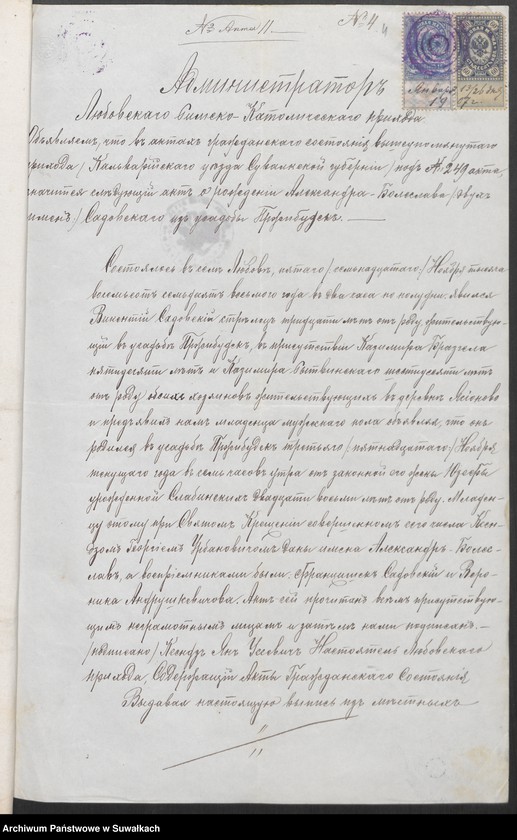 № Акта 11.
№ 4
Января
19
Администраторъ
Любовскаго Римско-Католическаго прихода
Объявляемъ, что въ актахъ гражданскаго состоянія вышеупомянутаго
прихода /Кальварійскаго уѣзда Сувалкской губерніи/ подъ № 249 акта
значится слѣдующій актъ о рожденіи Александра-Болеслава /двухъ
именъ/ Садовскаго изъ усадьбы
Состоялось въ селѣ Любовѣ, пятаго /семнадцатаго/ Ноября тысяча
восемьсотъ семьдесятъ восьмого года въ два часа по полудни. Явился
Викентій Садовскій стрѣлецъ тридцати лѣтъ отъ роду, жительствую-
щій въ усадьбѣ въ присутствіи Казимира
пятидесяти лѣтъ и Казимира шестидесяти лѣтъ
отъ роду обоихъ хозяиновъ жительствующихъ въ деревнѣ
и предъявилъ намъ младенца мужескаго пола объявляя, что онъ
родился въ усадьбѣ третьяго /пятнадцатаго/ Ноября
текущаго года въ семь часовъ утра отъ законной его жены Юзефы
урожденной двадцати восьми лѣтъ отъ роду. Младен-
цу этому при Святомъ Крещеніи совершенномъ сего числа Ксен-
дзомъ Георгіемъ Урбановичемъ даны имена Александръ-Болес-
лавъ, а воспріемниками были: Францишекъ Садовскій и Веро-
ника Андрушкевичова. Актъ сей прочитанъ всѣмъ присутствую-
щимъ неграмотнымъ лицамъ и затѣмъ нами подписанъ. —
/подписано/ Ксендзъ Янъ Настоятель Любовскаго
прихода, Содержащій Акты Гражданскаго Состоянія
Выдавая настоящую выпись изъ мѣстныхъ
Archiwum Państwowe w Suwałkach